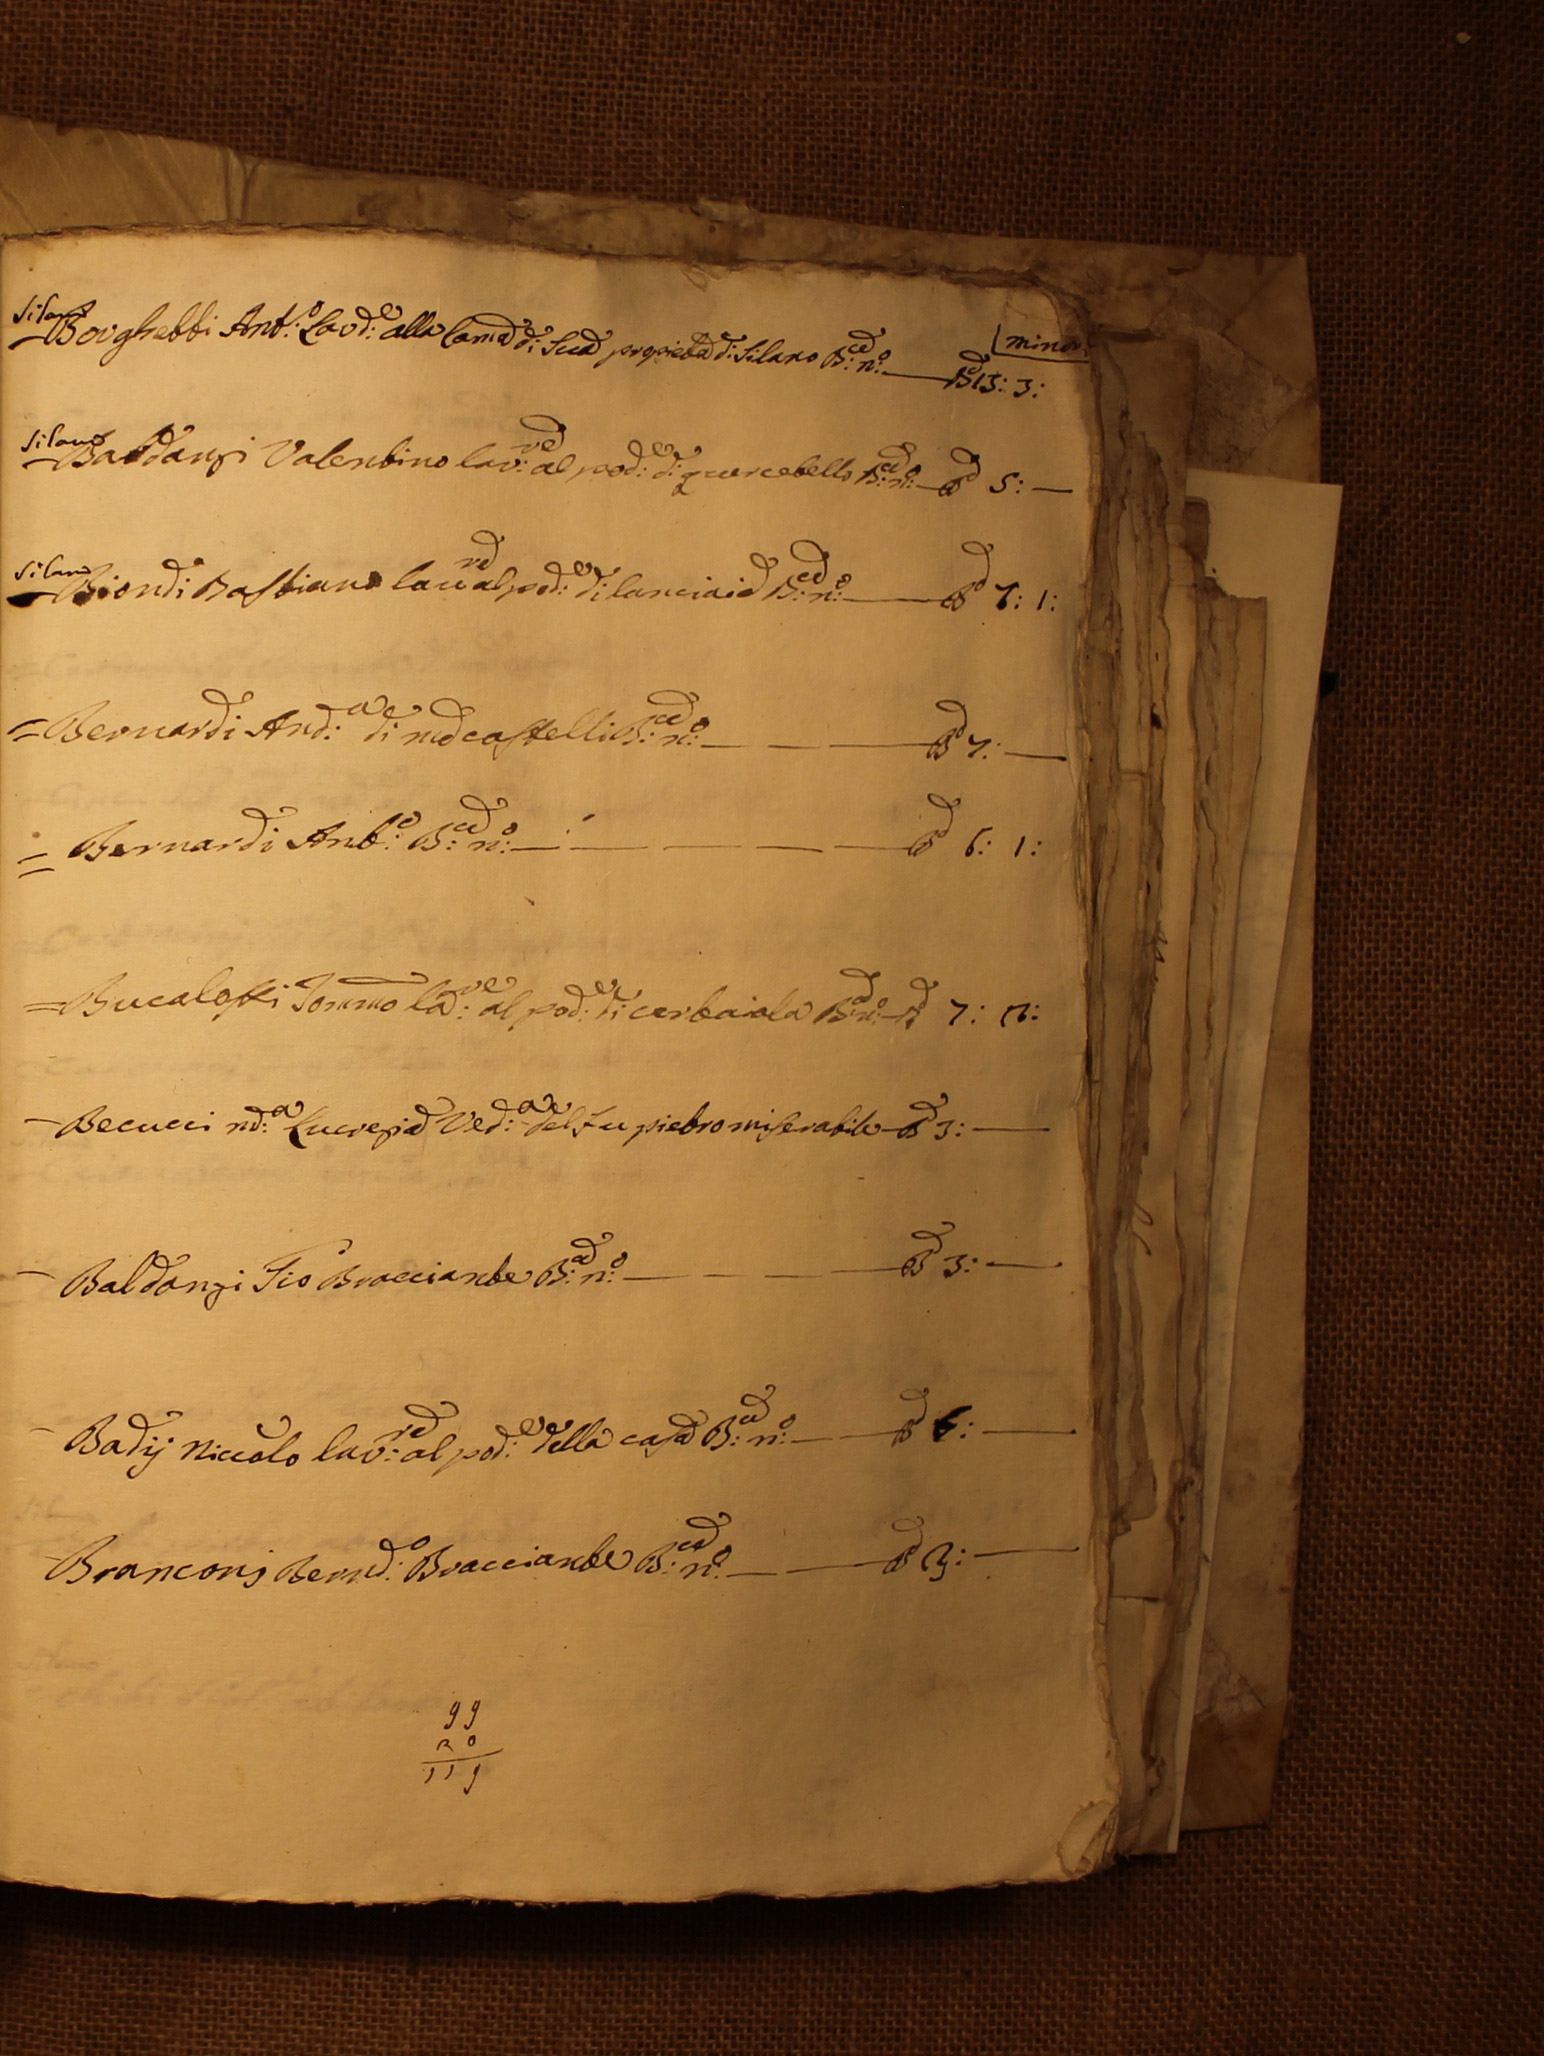 minori
Silano
Borghetti Ant:o Lavd:e alla Cama di Sua propietà di Silano B:ca n:o Ba 13: 3:
Silano
Baldanzi Valentino lav:re al pod:e di quercetello B:ca n:o Ba 5: —
Silano
Biondi Bastiano lav:re al pod:e di lanciaia B:ca n:o Ba 7: 1:
= Bernardi And:a di castelli B:ca n:o Ba 7: —
= Bernardi Ant:o B:ca n:o Ba 6: 1:
= Bucalossi Tommo la:re al pod:e di cerbaiola B:ca n:o Ba 7: 2:
— Becucci md:a Lucrezia Ved:a del fu pietro miserabile Ba 3: —
— Baldanzi Gio Bracciante B:ca n:o Ba 3: —
— Badij Niccolò lav:re al pod:e della casa B:ca n:o Ba 6: —
— Branconj Bernd:o Bracciante B:ca n:o Ba 3: —
99
20
119